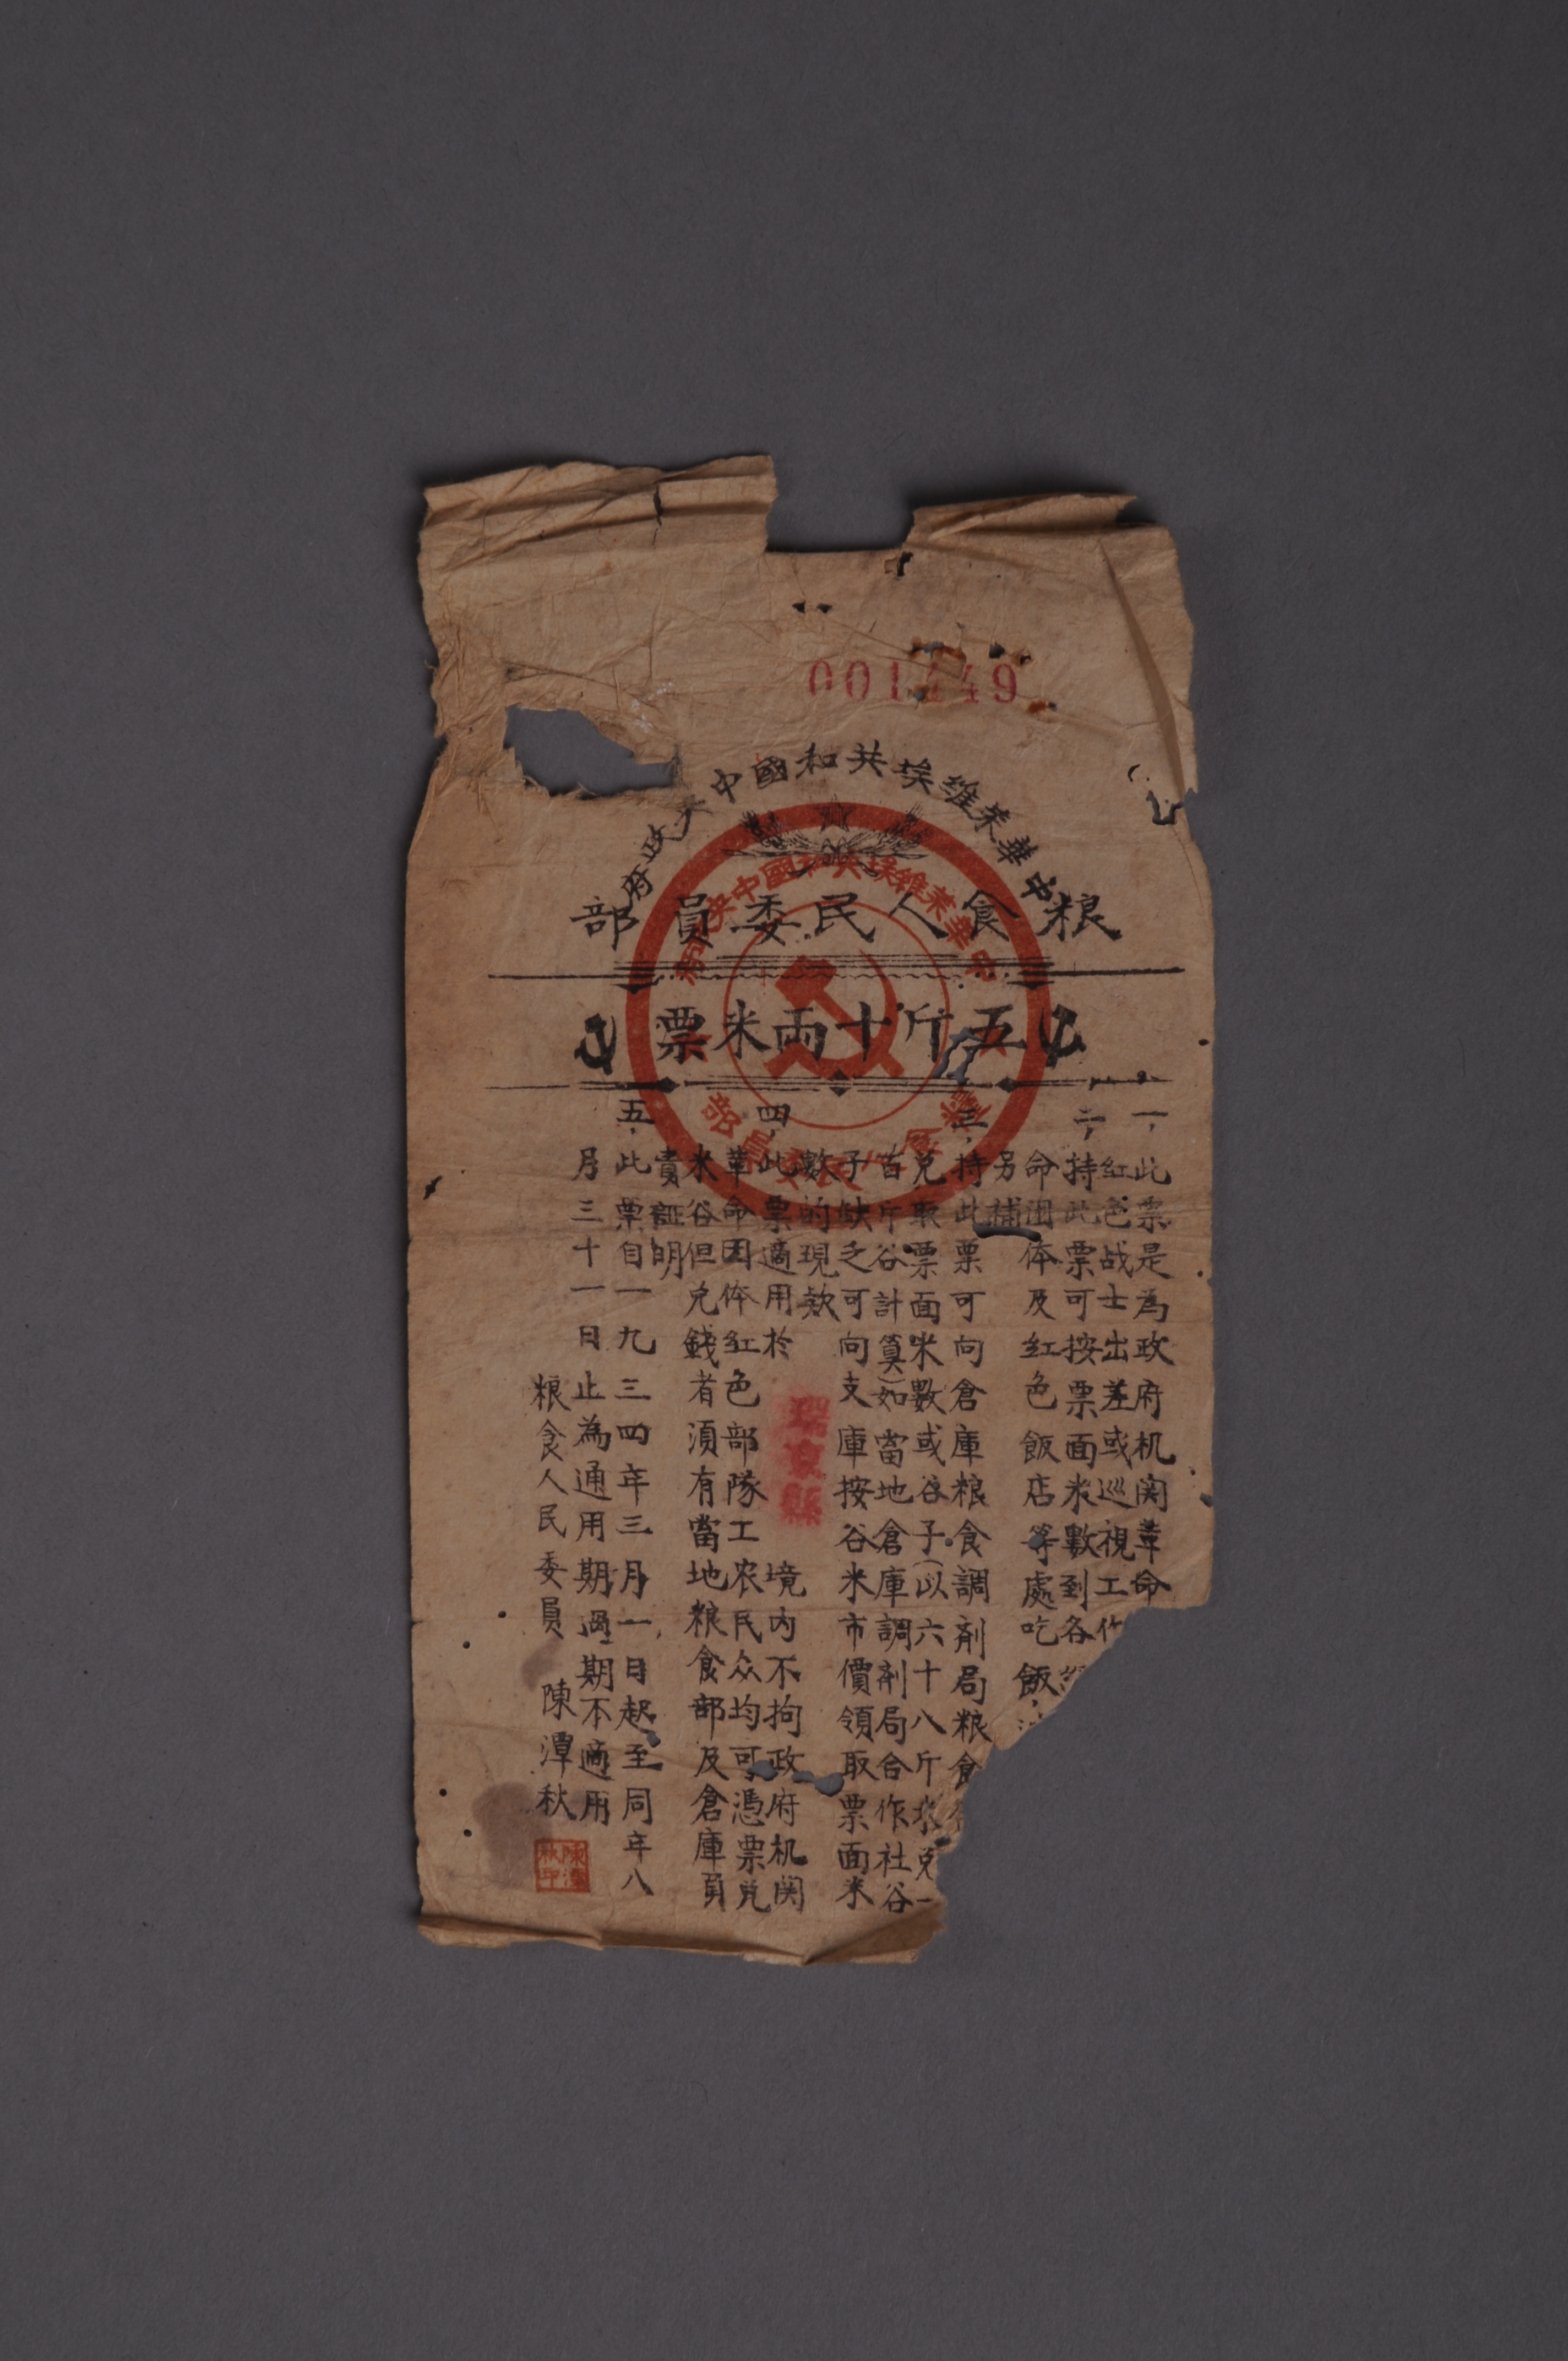 001449
中華蘇維埃共和國中央政府
粮食人民委員部
五斤十両米票
一，此票是為政府机関革命
红色战士出差或巡視工作
二，持此票可按票面米數到各
命団体及红色飯店等處吃飯，
另補
三，持此票可向倉庫粮食調剂局粮食
兑取票面米數或谷子（以六十八斤米兑一
百斤谷計算）如當地倉庫調剂局合作社谷
子缺乏可向支庫按谷米市價領取票面米
數的現欵
四，此票適用於 瑞京縣 境内不拘政府机関
革命団体红色部隊工农民众均可憑票兑
米谷但兑錢者須有當地粮食部及倉庫負
責証明
五，此票自一九三四年三月一日起至同年八
月三十一日止為通用期過期不適用
粮食人民委員 陳潭秋
陳潭秋印